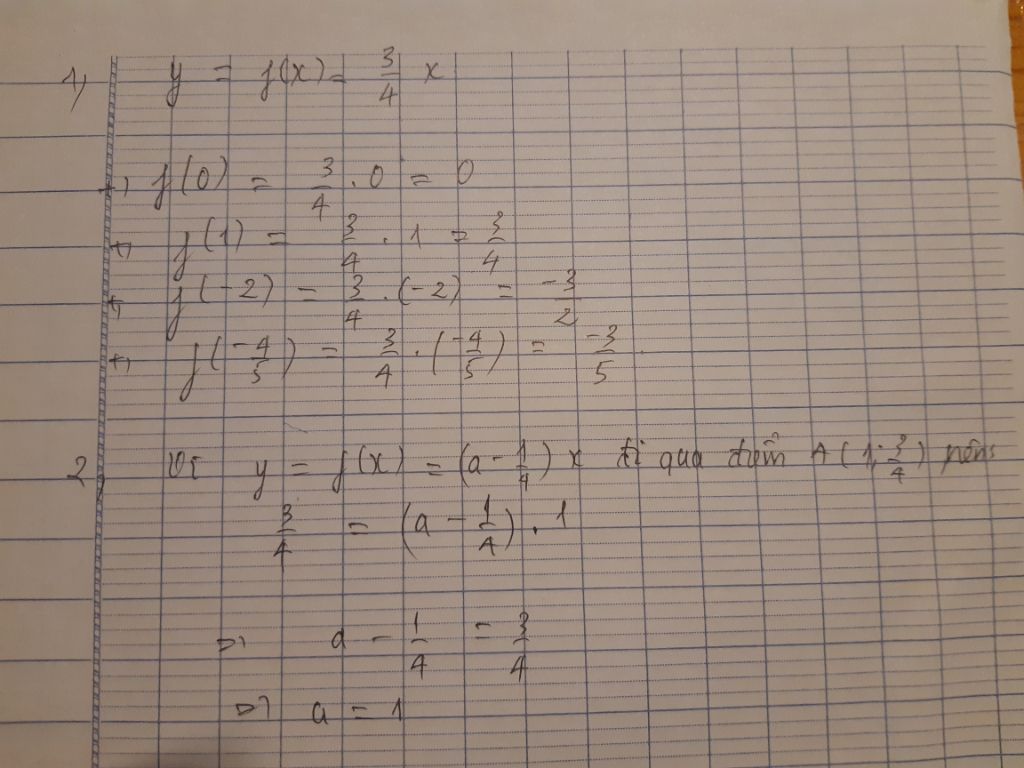 1) y = f(x) = 3/4 x
+) f(0) = 3/4 . 0 = 0
+) f(1) = 3/4 . 1 = 3/4
+) f(-2) = 3/4 . (-2) = -3/2
+) f(-4/5) = 3/4 . (-4/5) = -3/5
2 Vì y = f(x) = (a - 1/4) x đi qua điểm A (1; 3/4) nên:
3/4 = (a - 1/4) . 1
=> a - 1/4 = 3/4
=> a = 1